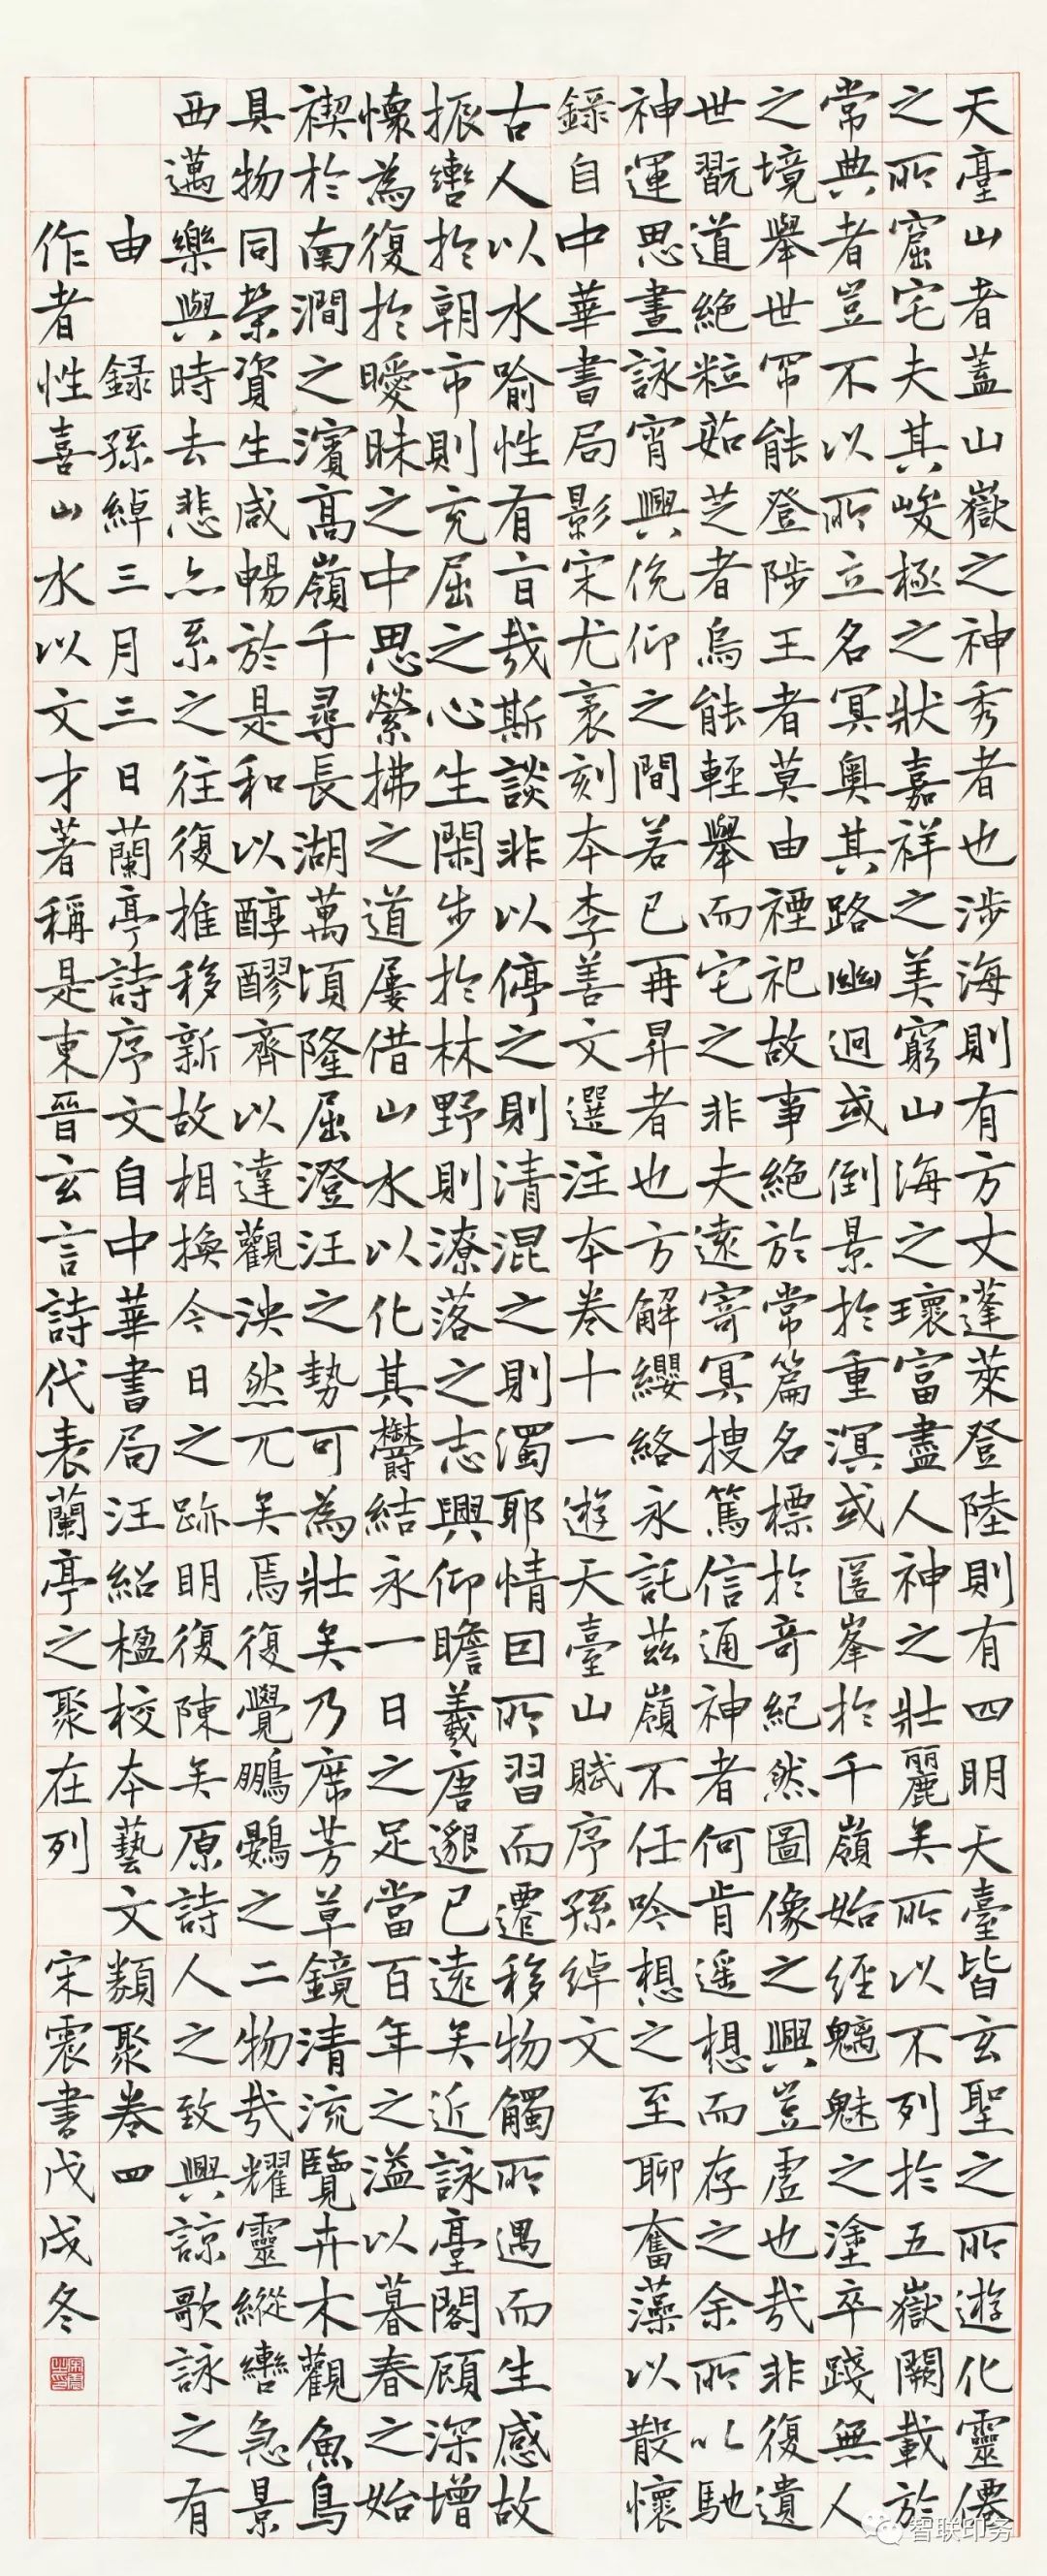 天臺山者蓋山嶽之神秀者也涉海則有方丈蓬萊登陸則有四明天臺皆玄聖之所遊化靈僊
之所窟宅夫其峻極之狀嘉祥之美窮山海之瓌富盡人神之壯麗矣所以不列於五嶽闕載於
常典者豈不以所立名冥奧其路幽迥或倒景於重溟或匿峯於千嶺始經魑魅之塗卒踐無人
之境舉世罕能登陟王者莫由禋祀故事絕於常篇名標於奇紀然圖像之興豈虛也哉非復遺
世翫道絕粒茹芝者烏能輕舉而宅之非夫遠寄冥搜篤信通神者何肯遥想而存之余所以馳
神運思晝詠宵興俛仰之間若已再昇者也方解纓絡永託茲嶺不任吟想之至聊奮藻以散懷
錄自中華書局影宋尤袤刻本李善文選注本卷十一遊天臺山賦序孫綽文
古人以水喻性有旨哉斯談非以停之則清混之則濁耶情因所習而遷移物觸所遇而生感故
振轡於朝市則充屈之心生閑步於林野則潦落之志興仰瞻羲唐邈已遠矣近詠臺閣顧深增
懷為復於曖昧之中思縈拂之道屢借山水以化其鬱結永一日之足當百年之溢以暮春之始
禊於南澗之濱高嶺千尋長湖萬頃隆屈澄汪之勢可為壯矣乃席芳草鏡清流覽卉木觀魚鳥
具物同榮資生咸暢於是和以醇醪齊以達觀泱然兀矣焉復覺鵬鷃之二物哉耀靈縱轡急景
西邁樂與時去悲亦系之往復推移新故相換今日之跡明復陳矣原詩人之致興諒歌詠之有
由 錄孫綽三月三日蘭亭詩序文自中華書局汪紹楹校本藝文類聚卷四
作者性喜山水以文才著稱是東晉玄言詩代表蘭亭之聚在列 宋震書戊戌冬
智联印务